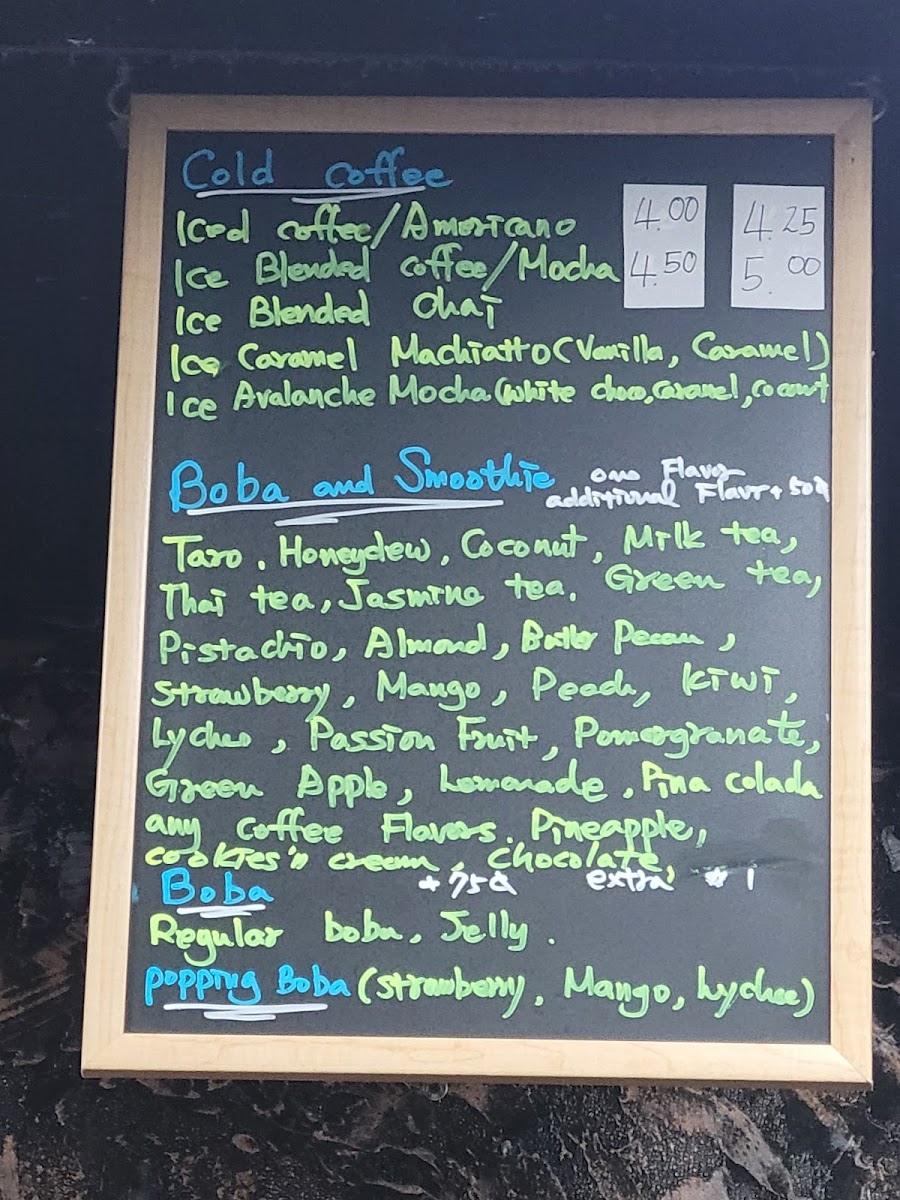 Cold coffee
Iced coffee/Americano 4.00 4.25
Ice Blended coffee/Mocha 4.50 5.00
Ice Blended Chai
Ice Caramel Machiatto (Vanilla, Caramel)
Ice Avalanche Mocha (White choco, caramel, coconut
Boba and Smoothie one Flavor
additional Flavr + 50¢
Taro, Honeydew, Coconut, Milk tea,
Thai tea, Jasmine tea, Green tea,
Pistachio, Almond, Butter Pecan,
Strawberry, Mango, Peach, Kiwi,
Lychee, Passion Fruit, Pomergranate,
Green Apple, Lemonade, Pina colada
any coffee Flavors. Pineapple,
cookies'n cream, chocolate,
Boba + 75¢ extra $ 1
Regular boba, Jelly.
popping Boba (strawberry, Mango, Lychee)